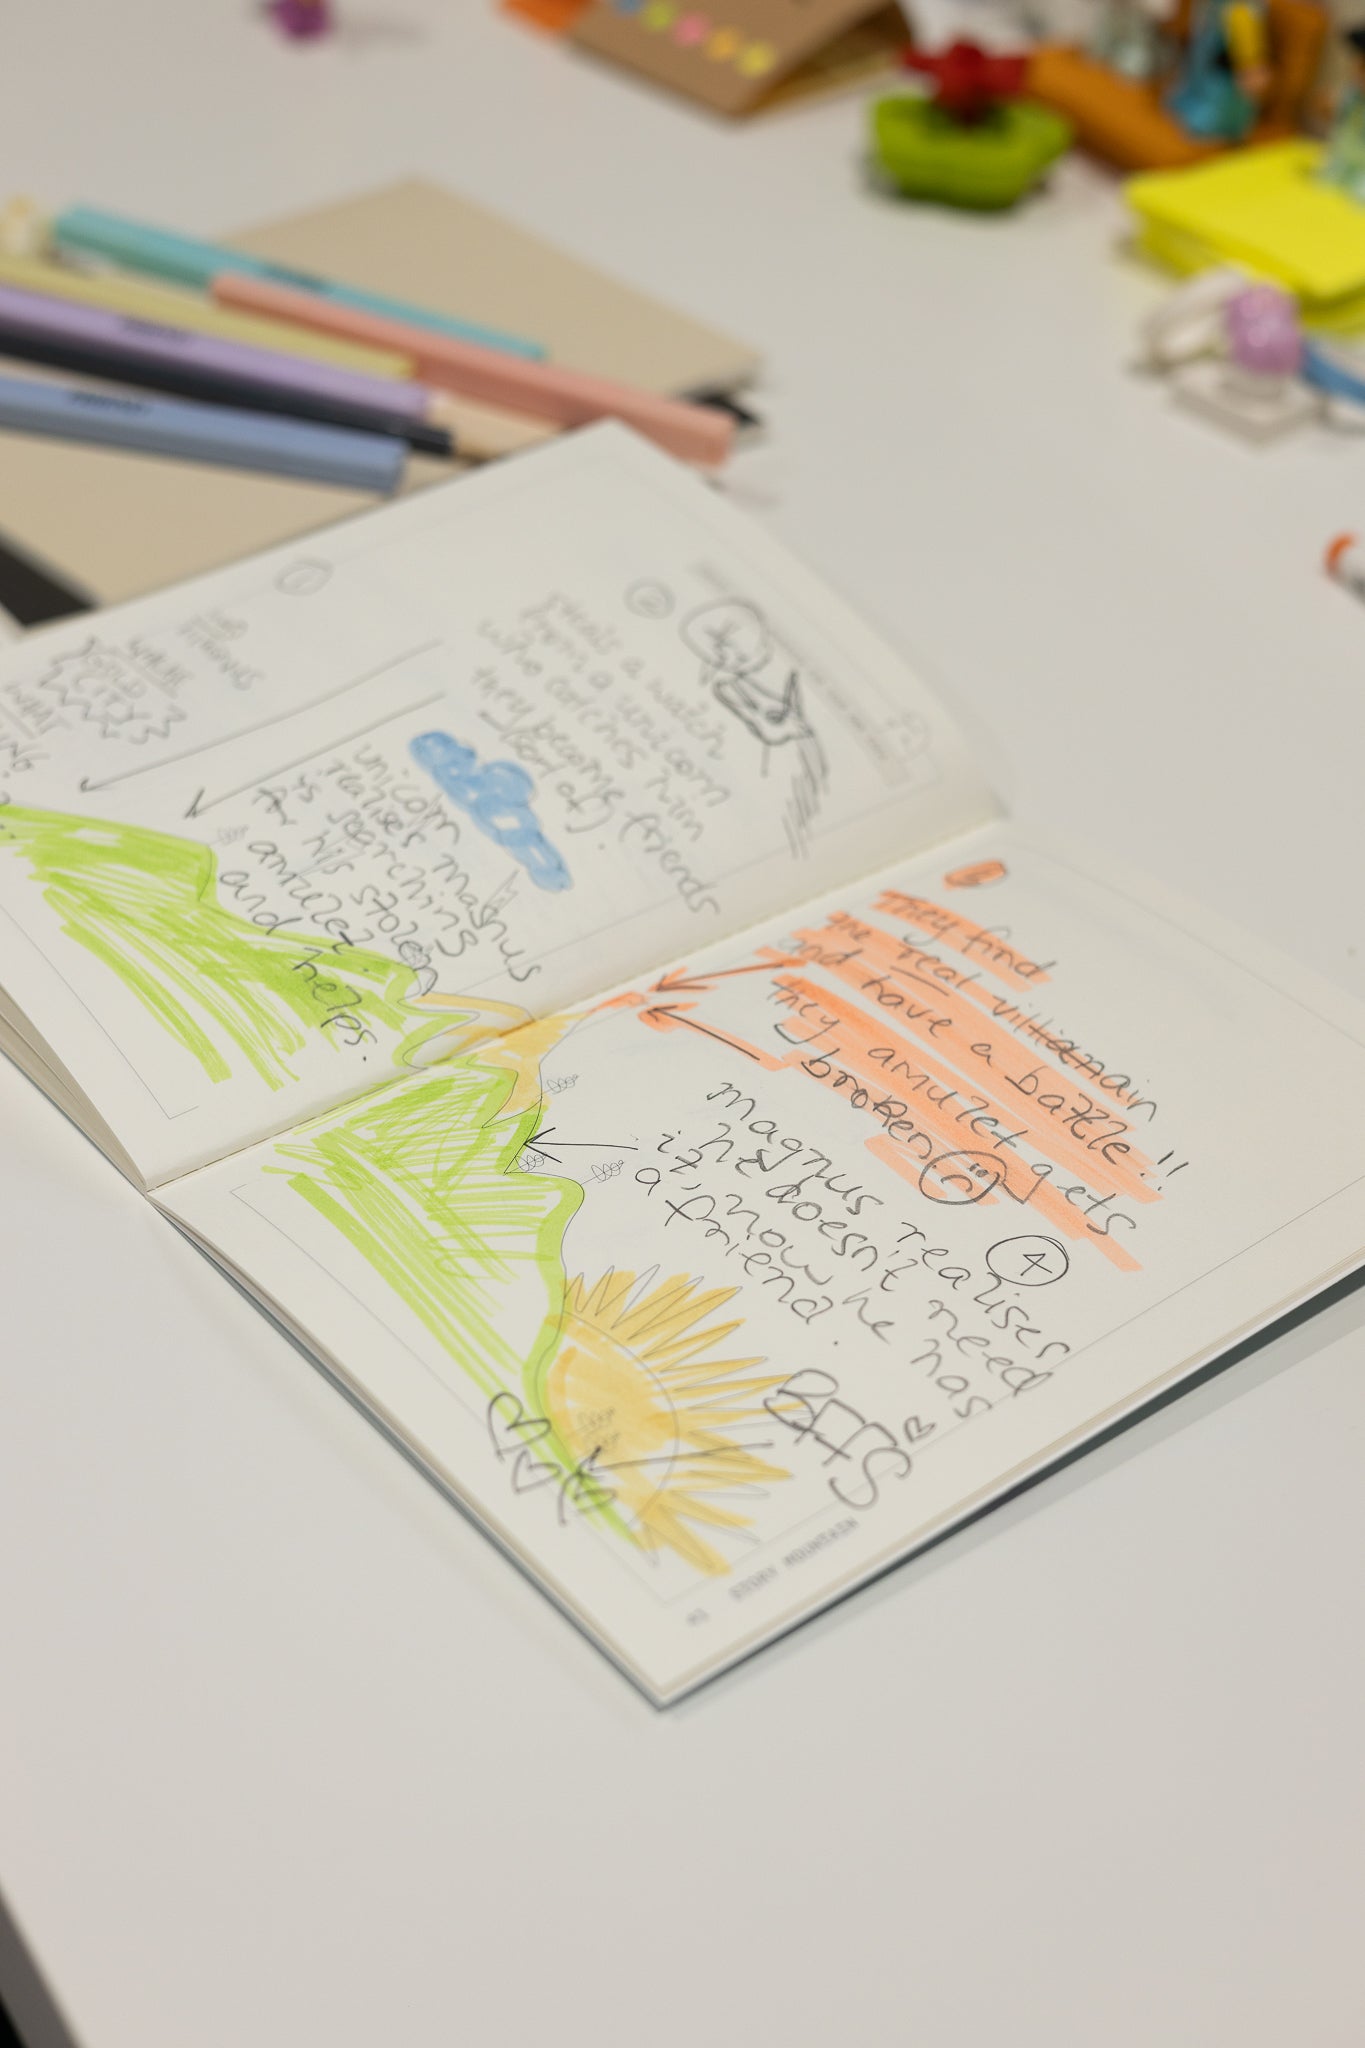 1
GOLD
CITY
WHAT
2
steals a watch
from a unicorn
who catches him
they become friends
(sort of).
unicorn
realises magnus
is searching
for his stolen
amulet.
and helps.
They find
the real villianain
and have a battle!!
they amulet gets
broken
4
magnus realises
he doesn't need
it, now he has
a friend.
BFFS
STORY MOUNTAIN